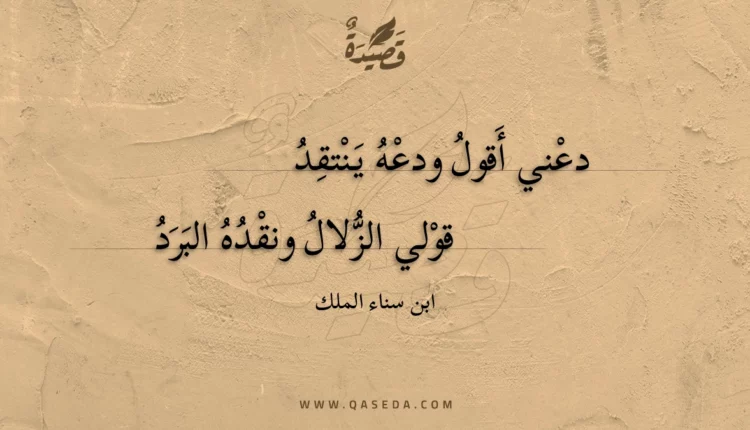 قَصِيدَةٌ
دعْني أَقولُ ودعْهُ يَنْتقِدُ
قوْلي الزُّلالُ ونقْدُهُ البَرَدُ
ابن سناء الملك
WWW.QASEDA.COM